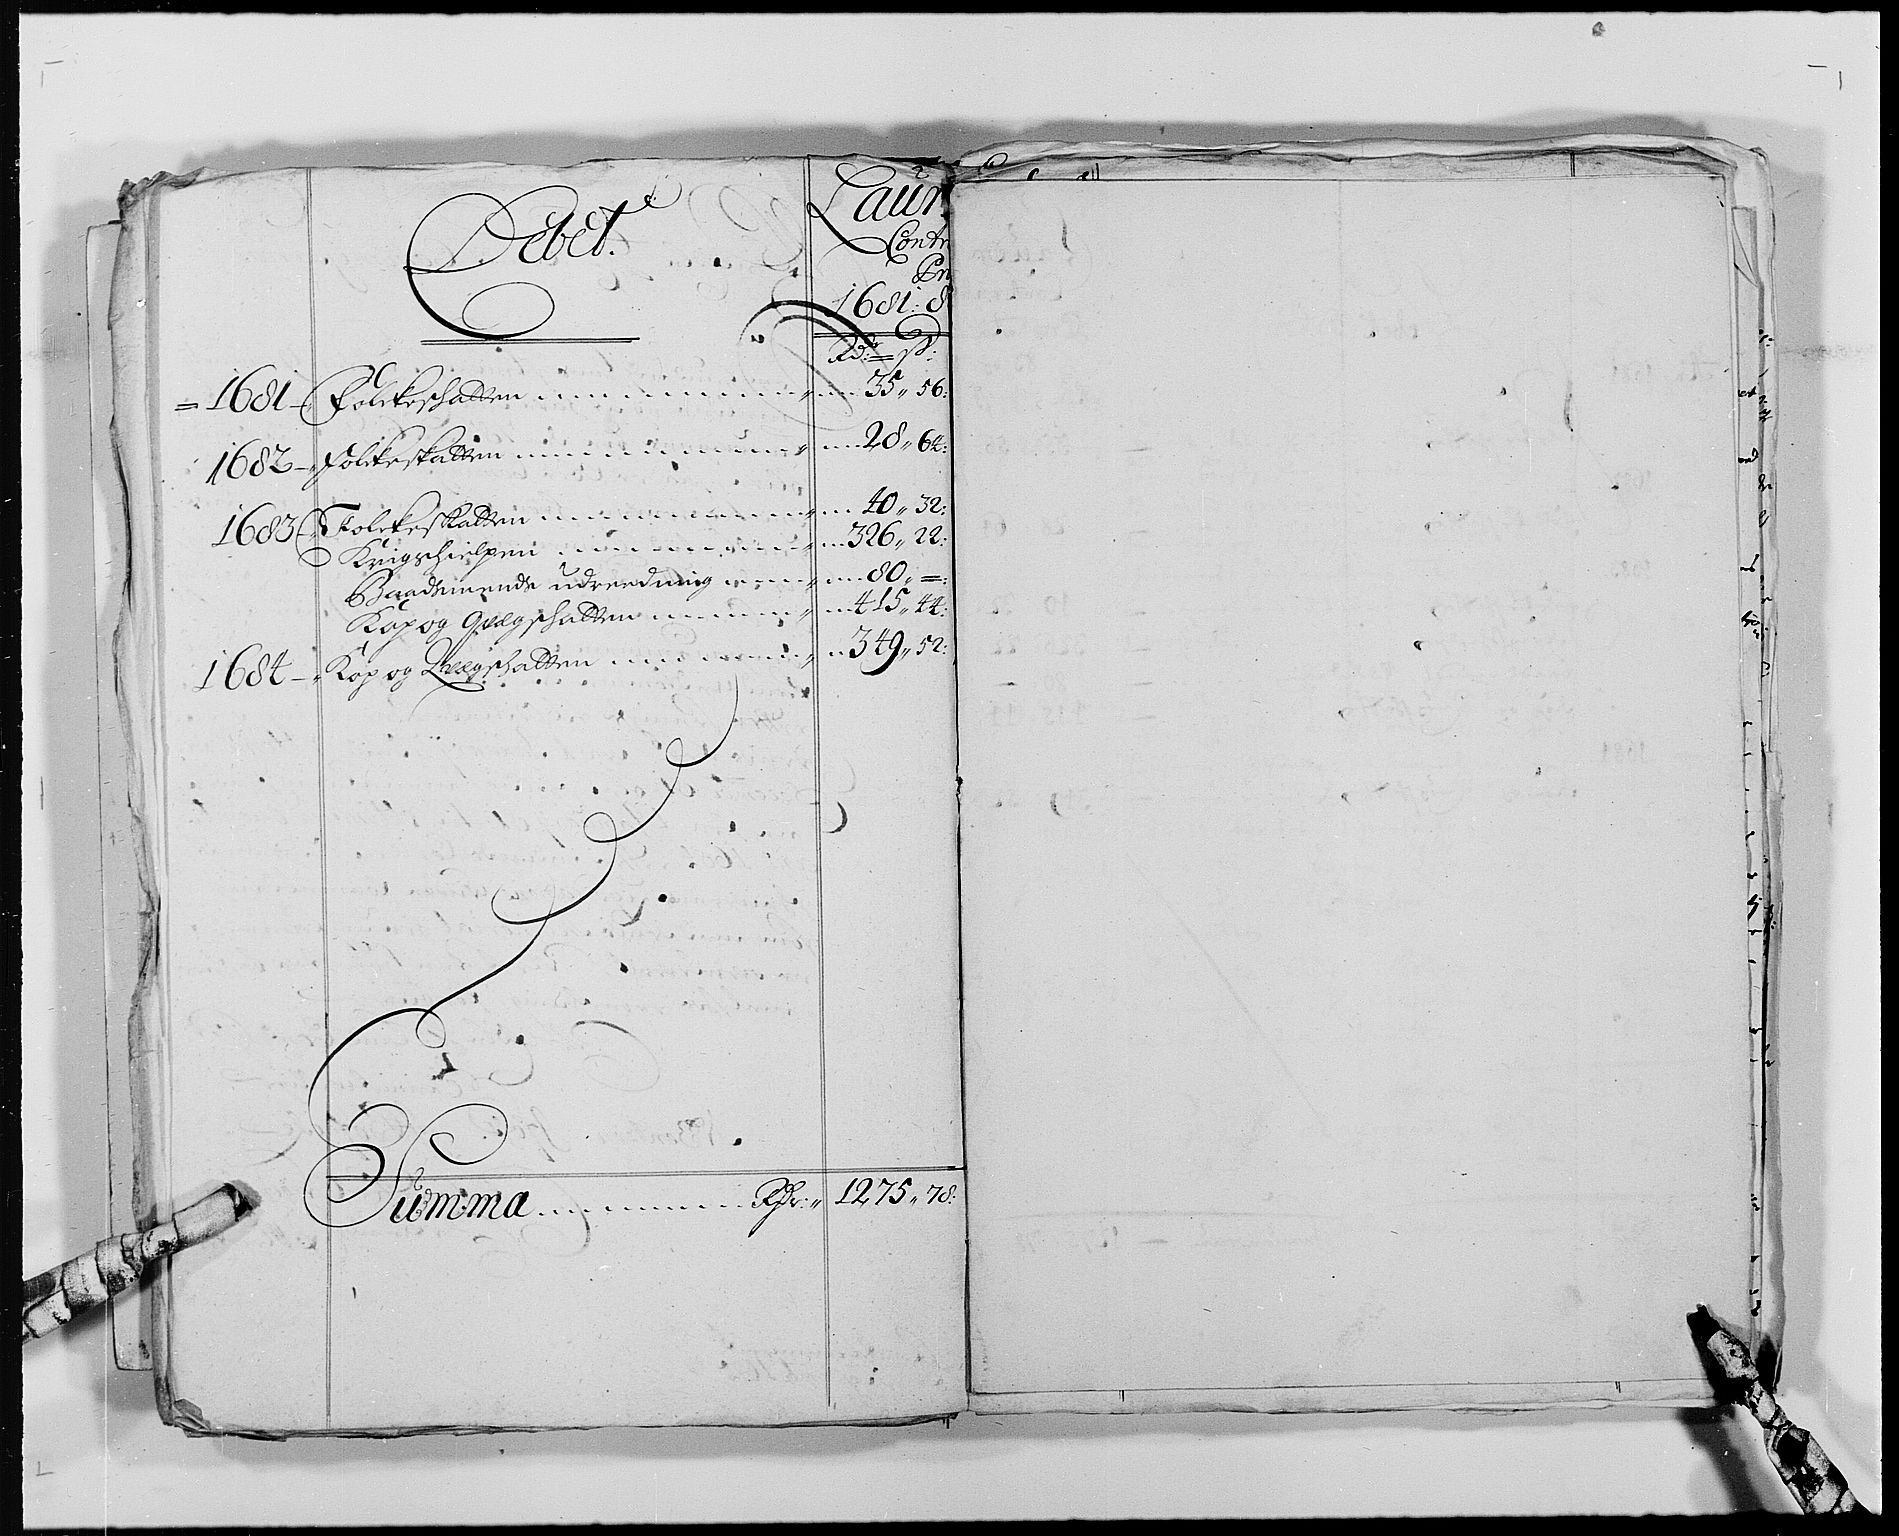 Debet.
Laur
Contr
Pr
1681: 8
Rd: = ß:
= 1681 – Folckeschatten 35,, 56:
1682 – Folckeskatten 28,, 64:
1683 Folckeskatten 40,, 32:
Krigschielpen 326,, 22:
Baadsmends udreedning 80,, =:
Kop og Qvægschatten 415,, 44:
1684 – Kop og Qvægschatten 349,, 52:
Summa Rdr: 1275,, 78: